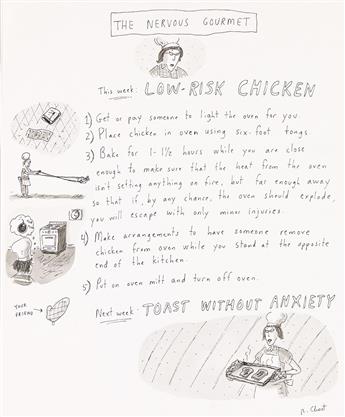 THE NERVOUS GOURMET
This week: LOW-RISK CHICKEN
1) Get or pay someone to light the oven for you.
2) Place chicken in oven using six-foot tongs.
3) Bake for 1-1½ hours while you are close
enough to make sure that the heat from the oven
isn't setting anything on fire, but far enough away
so that if, by any chance, the oven should explode,
you will escape with only minor injuries.
4) Make arrangements to have someone remove
chicken from oven while you stand at the opposite
end of the kitchen.
5) Put on oven mitt and turn off oven.
YOUR
FRIEND
Next week: TOAST WITHOUT ANXIETY
R. Chast